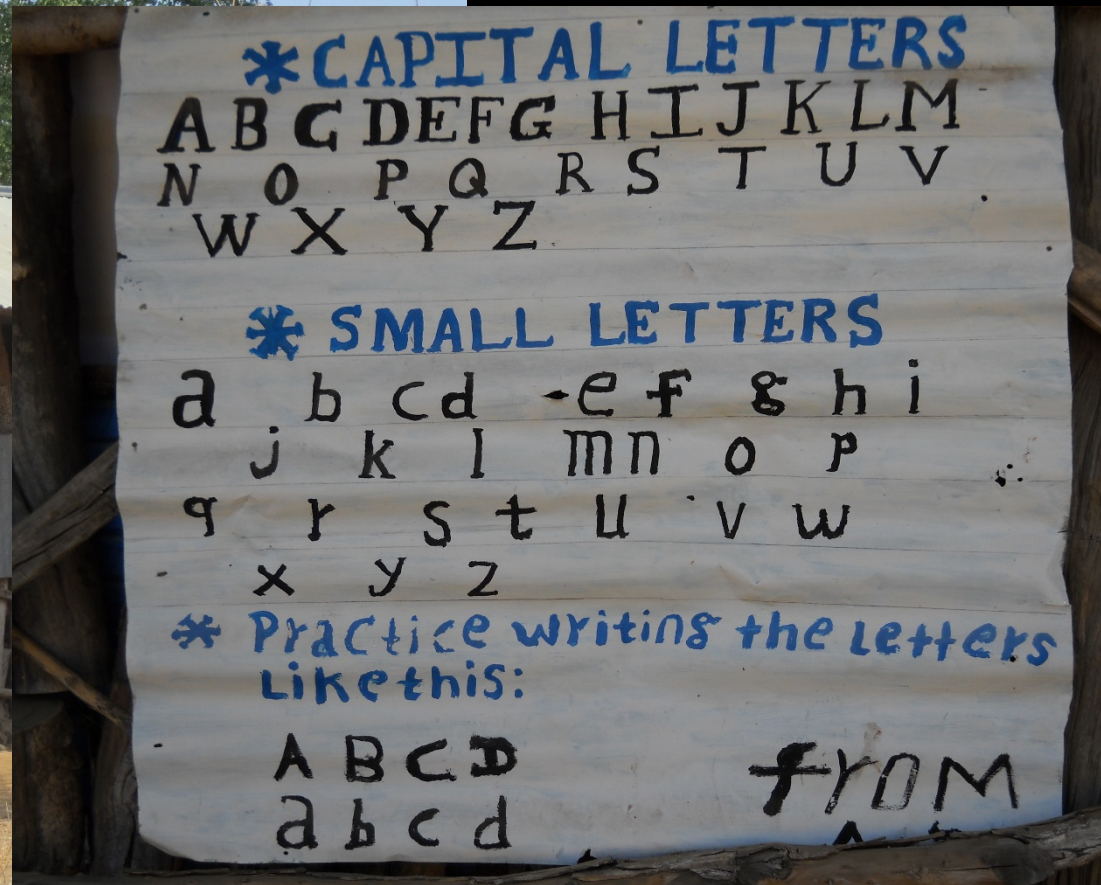 *CAPITAL LETTERS
A B C D E F G H I J K L M
N O P Q R S T U V
W X Y Z
* SMALL LETTERS
a b c d e f g h i
j k l m n o p
q r s t u v w
x y z
* Practice writing the Letters
Like this:
A B C D
a b c d
from